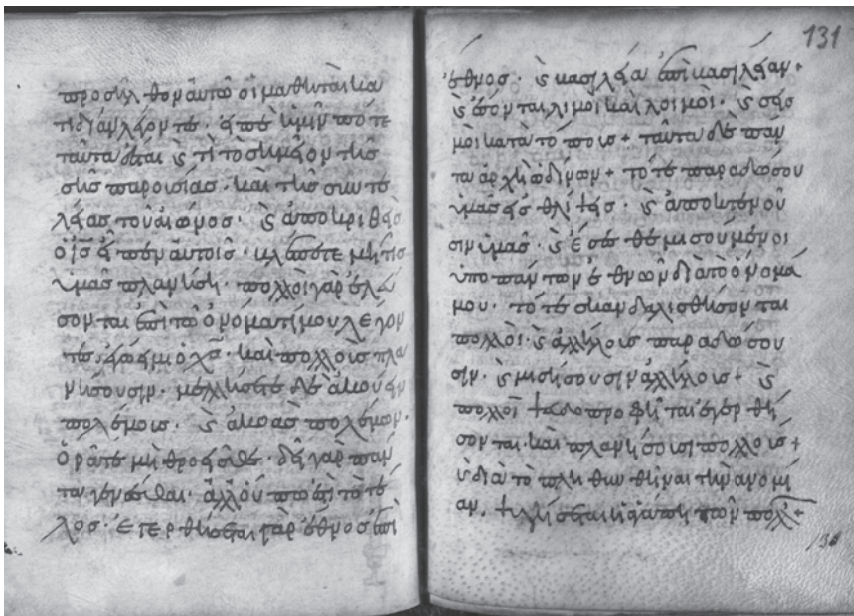 προσῆλθον αὐτῶ οἱ μαθηταὶ κα
τιδίαν λέγοντες· εἰπὲ ἡμῖν πότε
ταῦτα ἔσται ϗ τί τὸ σημεῖον τῆς
σῆς παρουσίας· καὶ τῆς συντε
λείας τοῦ αἰῶνος· ϗ ἀποκριθεὶς
ὁ ις̅ εἶπεν αὐτοῖς· βλέπετε μή τις
ὑμᾶς πλανήση· πολλοὶ γὰρ ἐλεύ
σονται ἐπὶ τῶ ὀνόματί μου λέγον
τες· ἐγώ εἰμι ὁ χς̅· καὶ πολλοὺς πλα
νήσουσιν· μελλήσετε δὲ ἀκούειν
πολέμους· ϗ ἀκοὰς πολέμων·
ὁρᾶτε μὴ θροεῖσθε· δεῖ γὰρ πάν
τα γενέσθαι· ἀλλ' οὔπω ἐστὶ τὸ τέ
λος· ἐγερθήσεται γὰρ ἔθνος ἐπὶ
131
ἔθνος· ϗ βασιλεία ἐπὶ βασιλείαν+
ϗ ἔσονται λιμοὶ καὶ λοιμοὶ· ϗ σεισ
μοὶ κατὰ τόπους+ ταῦτα δὲ πάν
τα ἀρχὴ ὠδίνων+ τότε παραδώσου
ὑμᾶς εἰς θλίψεις· ϗ ἀποκτενοῦ
σιν ὑμᾶς· ϗ ἔσεσθε μισούμενοι
ὑπὸ πάντων ἐθνῶν διὰ τὸ ὄνομά
μου· τότε σκανδαλισθήσονται
πολλοὶ· ϗ ἀλλήλους παραδώσου
σιν· ϗ μισήσουσιν ἀλλήλους+ ϗ
πολλοὶ ψευδοπροφῆται ἐγερθή
σονται· καὶ πλανήσουσι πολλοὺς+
ϗ διὰ τὸ πληθυνθῆναι τὴν ἀνομί
αν, ψυγήσεται ἡ ἀγάπη τῶν πολλ+